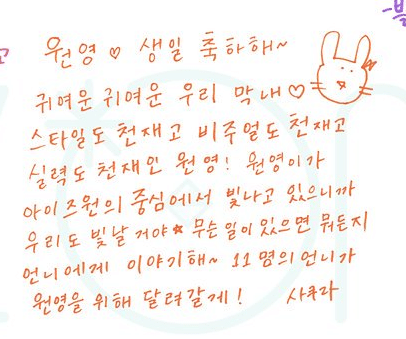 원영♡ 생일 축하해~
귀여운 귀여운 우리 막내♡
스타일도 천재고 비주얼도 천재고
실력도 천재인 원영! 원영이가
아이즈원의 중심에서 빛나고 있으니까
우리도 빛날 거야★ 무슨 일이 있으면 뭐든지
언니에게 이야기해~ 11명의 언니가
원영을 위해 달려갈게! 사쿠라